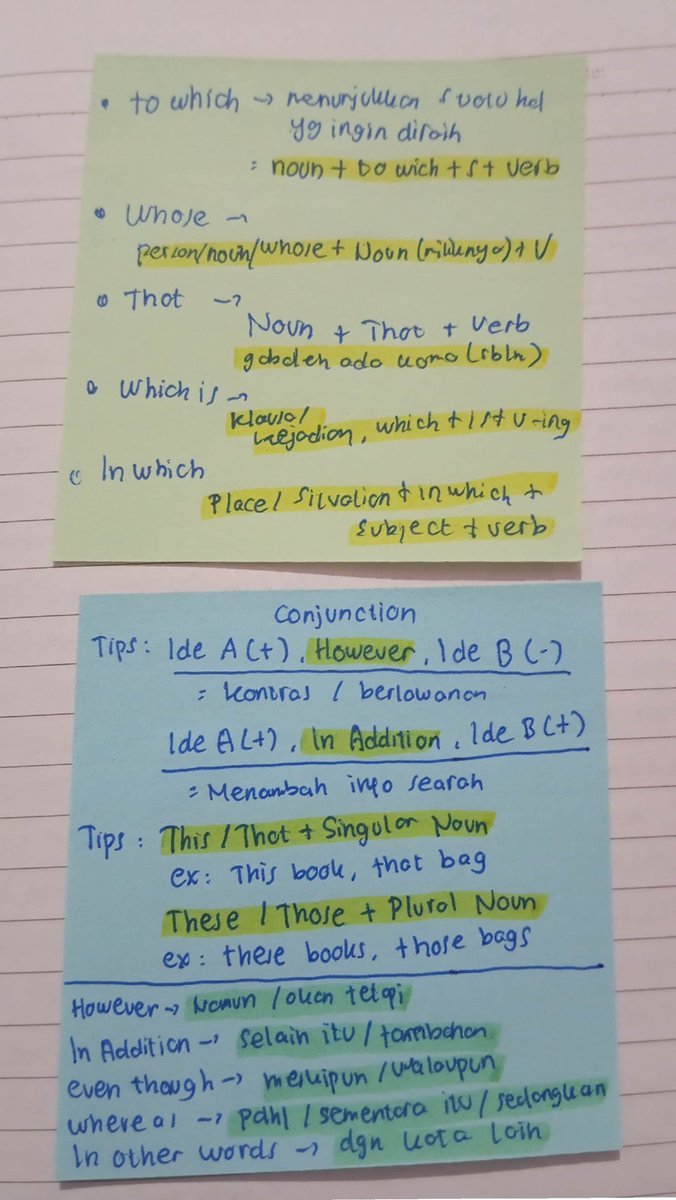 • to which → menunjukkan suatu hal
yg ingin diraih
= noun + to wich + s + verb
• Whose →
person/noun/whose + Noun (miliknya) + V
• That →
Noun + That + verb
gaboleh ada koma (sblm)
• Which is →
klausa/
kejadian, which + is + v-ing
• In which
Place / Situation + in which +
subject + verb
Conjunction
Tips: Ide A (+), However, Ide B (-)
= kontras / berlawanan
Ide A (+), In Addition, Ide B (+)
= Menambah info searah
Tips: This / That + Singular Noun
ex: This book, that bag
These / Those + Plural Noun
ex: these books, those bags
However → Namun / akan tetapi
In Addition → selain itu / tambahan
even though → meskipun / walaupun
where as → pdhl / sementara itu / sedangkan
In other words → dgn kata lain